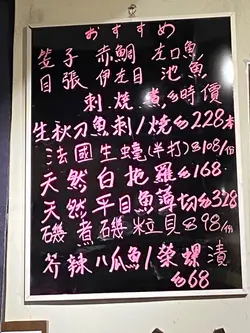 おすすめ
笠子 赤鯛 左口魚
目張 伊左目 池魚
刺 燒 煮 時價
生秋刀魚刺/燒 228
法國生蠔(半打) 108/份
天然白拖羅 168
天然平目魚薄切 328
磯煮磯粒貝 98/份
芥辣八爪魚/榮螺漬
68